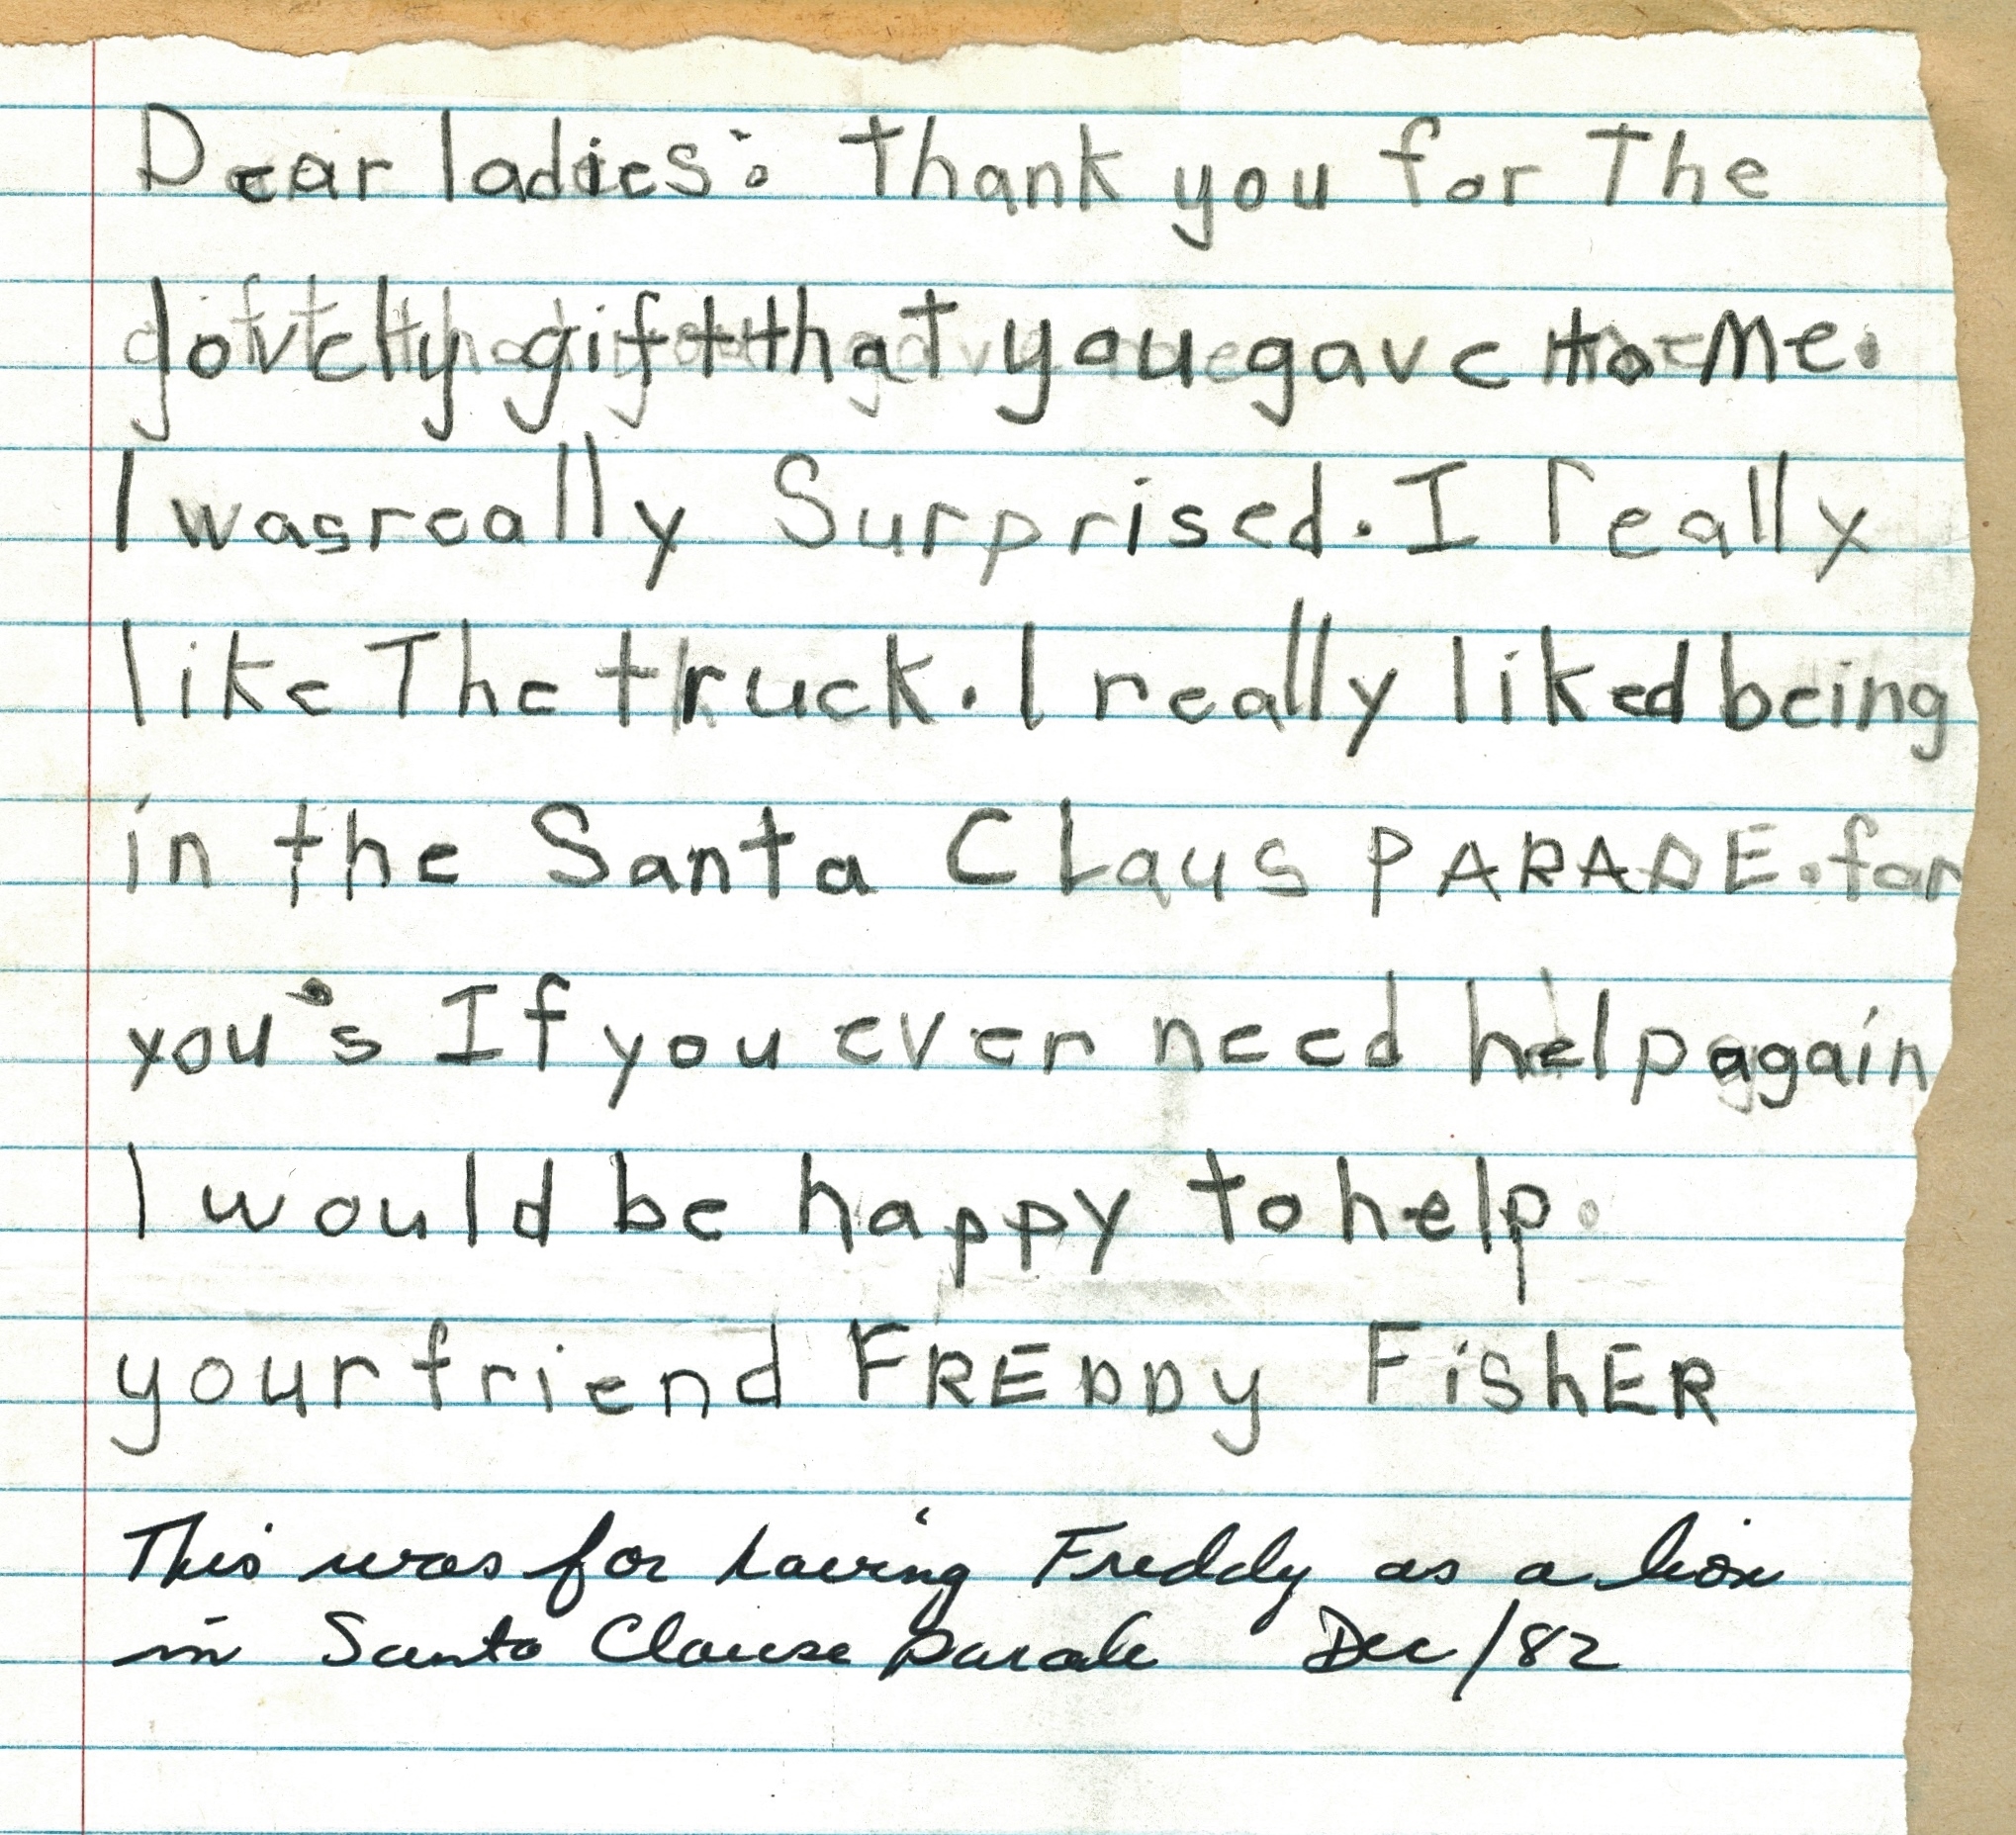 Dear ladies: Thank you for The
lovely gift that you gave to Me.
I was really Surprised. I really
like The truck. I really liked being
in the Santa CLaus PARADE. for
you's If you ever need help again
I would be happy to help.
your friend FREDDy FishER
This was for having Freddy as a lion
in Santa Clause parade Dec/82